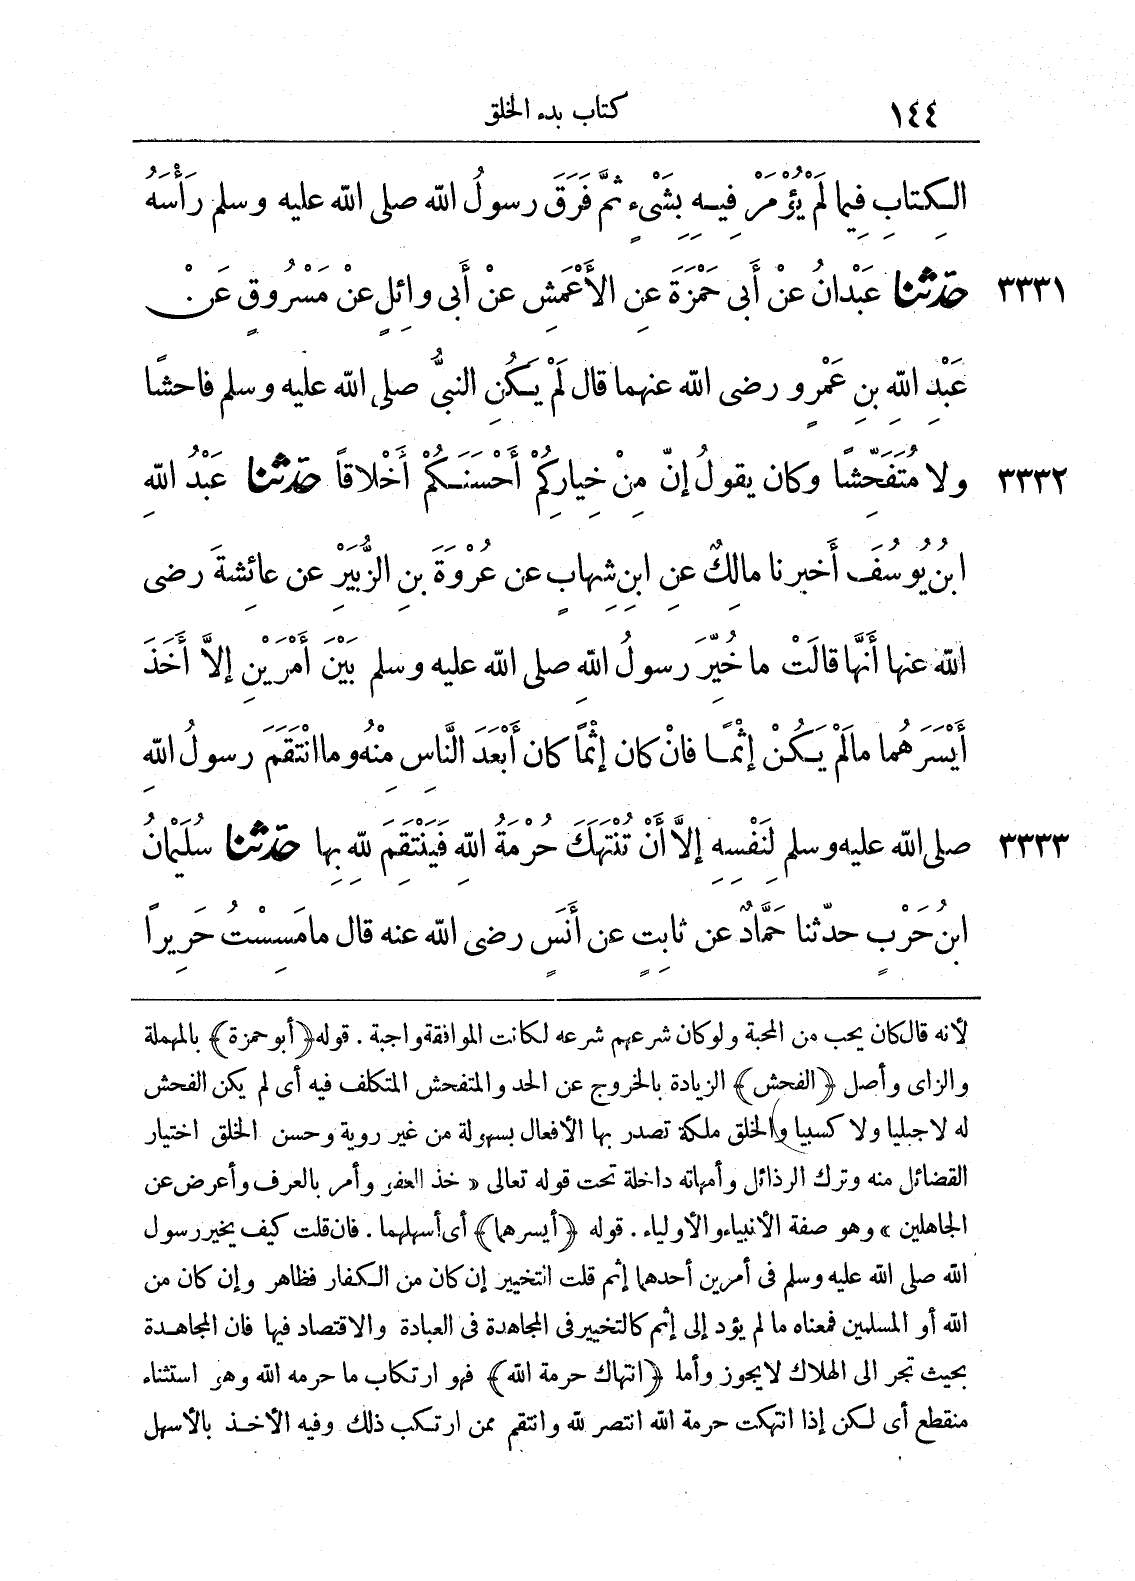 ١٤٤ كتاب بدء الخلق
الكِتابِ فِيما لَمْ يُؤْمَرْ فِيهِ بِشَىْءٍ ثمَّ فَرَقَ رسولُ الله صلى الله عليه وسلم رَأْسَهُ
٣٣٣١ حدّثنا عَبْدانُ عَنْ أَبى حَمْزَةَ عنِ الأَعْمَشِ عنْ أَبى وائِلٍ عنْ مَسْرُوقٍ عَنْ
عَبْدِ اللهِ بنِ عَمْرٍو رضى الله عنهما قال لَمْ يَكُنِ النبىُّ صلى الله عليه وسلم فاحشًا
٣٣٣٢ ولا مُتَفَحِّشًا وكان يقولُ إنّ مِنْ خِيارِكُمْ أَحْسَنَكُمْ أَخْلاقاً حدّثنا عَبْدُ اللهِ
ابنُ يُوسُفَ أَخبرنا مالِكٌ عنِ ابنِ شِهابٍ عن عُرْوَةَ بنِ الزُّبَيْرِ عن عائِشةَ رضى
الله عنها أَنَّها قالَتْ ما خُيِّرَ رسولُ اللهِ صلى الله عليه وسلم بَيْنَ أَمْرَيْنِ إلاَّ أَخَذَ
أَيْسَرَهُما مالَمْ يَكُنْ إثْمًا فانْ كان إثْمًا كان أَبْعَدَ النَّاسِ مِنْهُ وما انْتَقَمَ رسولُ اللهِ
٣٣٣٣ صلى الله عليه وسلم لِنَفْسِهِ إلاَّ أَنْ تُنْتَهَكَ حُرْمَةُ اللهِ فَيَنْتَقِمَ للهِ بِها حدّثنا سُلَيْمانُ
ابنُ حَرْبٍ حدّثنا حَمَّادٌ عن ثابِتٍ عن أَنَسٍ رضى الله عنه قال ما مَسِسْتُ حَرِيراً
لأنه قال كان يحب من المحبة ولو كان شرعهم شرعه لكانت الموافقة واجبة . قوله ﴿أبو حمزة﴾ بالمهملة
والزاى وأصل ﴿الفحش﴾ الزيادة بالخروج عن الحد والمتفحش المتكلف فيه أى لم يكن الفحش
له لا جبليا ولا كسبيا والخلق ملكة تصدر بها الأفعال بسهولة من غير روية وحسن الخلق اختيار
الفضائل منه وترك الرذائل وأمهاته داخلة تحت قوله تعالى « خذ العفو وأمر بالعرف وأعرض عن
الجاهلين » وهو صفة الأنبياء والأولياء . قوله ﴿أيسرهما﴾ أى أسهلهما . فان قلت كيف يخير رسول
الله صلى الله عليه وسلم فى أمرين أحدهما إثم قلت التخيير إن كان من الكفار فظاهر وإن كان من
الله أو المسلمين فمعناه ما لم يؤد إلى إثم كالتخيير فى المجاهدة فى العبادة والاقتصاد فيها فان المجاهدة
بحيث تجر الى الهلاك لا يجوز وأما ﴿انتهاك حرمة الله﴾ فهو ارتكاب ما حرمه الله وهو استثناء
منقطع أى لكن إذا انتهكت حرمة الله انتصر لله وانتقم ممن ارتكب ذلك وفيه الأخذ بالأسهل